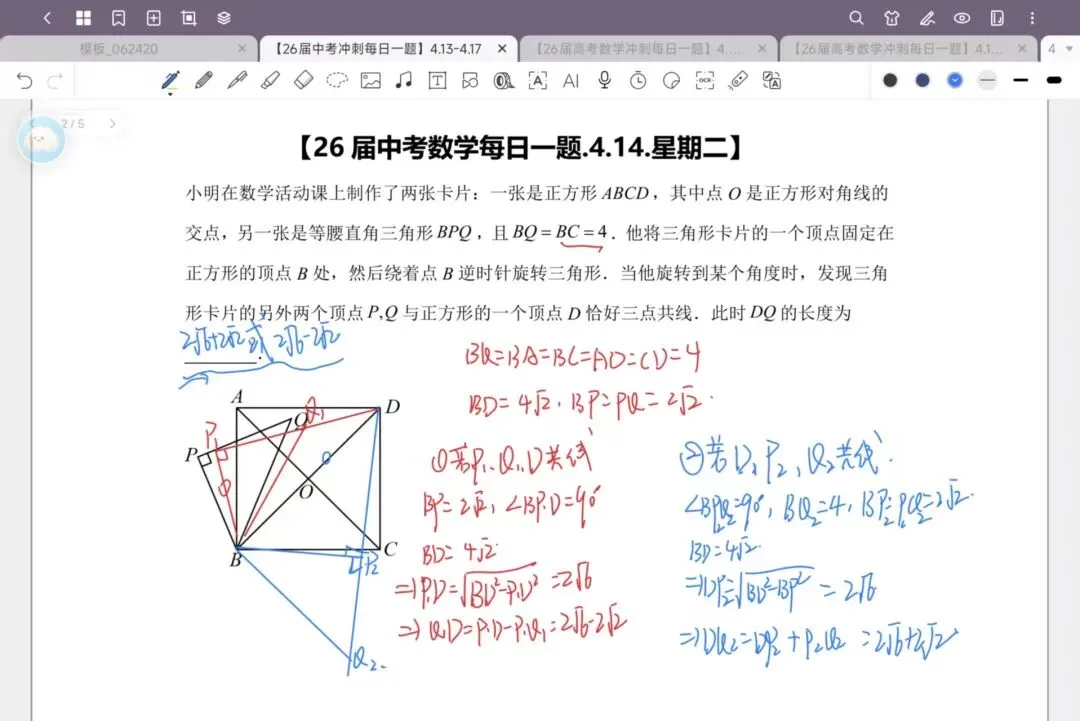 模板_062420
【26届中考冲刺每日一题】4.13-4.17
【26届高考数学冲刺每日一题】4....
【26届高考数学冲刺每日一题】4.1...
4
2/5
【26 届中考数学每日一题.4.14.星期二】
小明在数学活动课上制作了两张卡片：一张是正方形 ABCD，其中点 O 是正方形对角线的
交点，另一张是等腰直角三角形 BPQ，且 BQ = BC = 4．他将三角形卡片的一个顶点固定在
正方形的顶点 B 处，然后绕着点 B 逆时针旋转三角形．当他旋转到某个角度时，发现三角
形卡片的另外两个顶点 P,Q 与正方形的一个顶点 D 恰好三点共线．此时 DQ 的长度为
2√6+2√2 或 2√6-2√2
．
BQ=BA=BC=AD=CD=4
BD=4√2, BP=PQ=2√2.
①若P₁、Q₁、D共线
BP₁=2√2, ∠BP₁D=90°
BD=4√2
⇒P₁D=√BD²-P₁D² =2√6
⇒Q₁D=P₁D-P₁Q₁=2√6-2√2
②若D、P₂、Q₂共线.
∠BP₂Q₂=90°, BQ₂=4, BP₂=P₂Q₂=2√2.
BD=4√2.
⇒DP₂=√BD²-BP₂² =2√6
⇒DQ₂=DP₂+P₂Q₂=2√6+2√2
A
D
Q
Q₁
P
P₁
O
B
C
P₂
Q₂